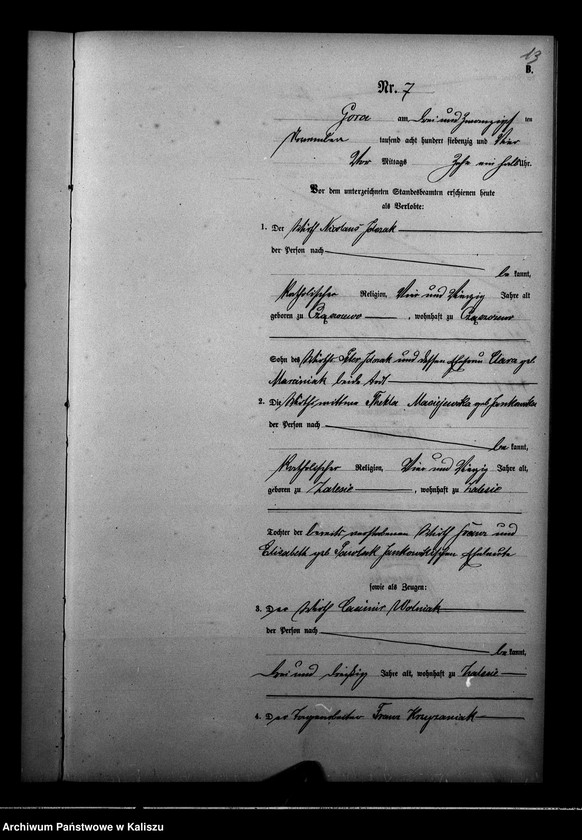 13
B.
Nr. 7
Gora am, drei und zwanzigs ten
November tausend acht hundert siebenzig und vier
Vor Mittags Zehn ein halb Uhr.
Vor dem unterzeichneten Standesbeamten erschienen heute
als Verlobte:
1. Der Wirth
der Person nach
be kannt,
katholischer Religion, Vier und Vierzig Jahre alt
geboren zu , wohnhaft zu
Sohn des Wirths Peter und dessen Ehefrau Clara geb.
Marciniak beide todt
2. Die Wirthswittwe Thekla Maciejewska geb. Jankowska
der Person nach
be kannt,
katholischer Religion, Vier und Vierzig Jahre alt,
geboren zu Zalesie , wohnhaft zu Zalesie
Tochter der bereits verstorbenen Wirth Franz und
Elisabeth geb. Jankowskischen Eheleute
sowie als Zeugen:
3. Der Wirth Casimir Wolniak
der Person nach
be kannt,
drei und dreißig Jahre alt, wohnhaft zu Zalesie
4. Der Franz Krzyzaniak
Archiwum Państwowe w Kaliszu